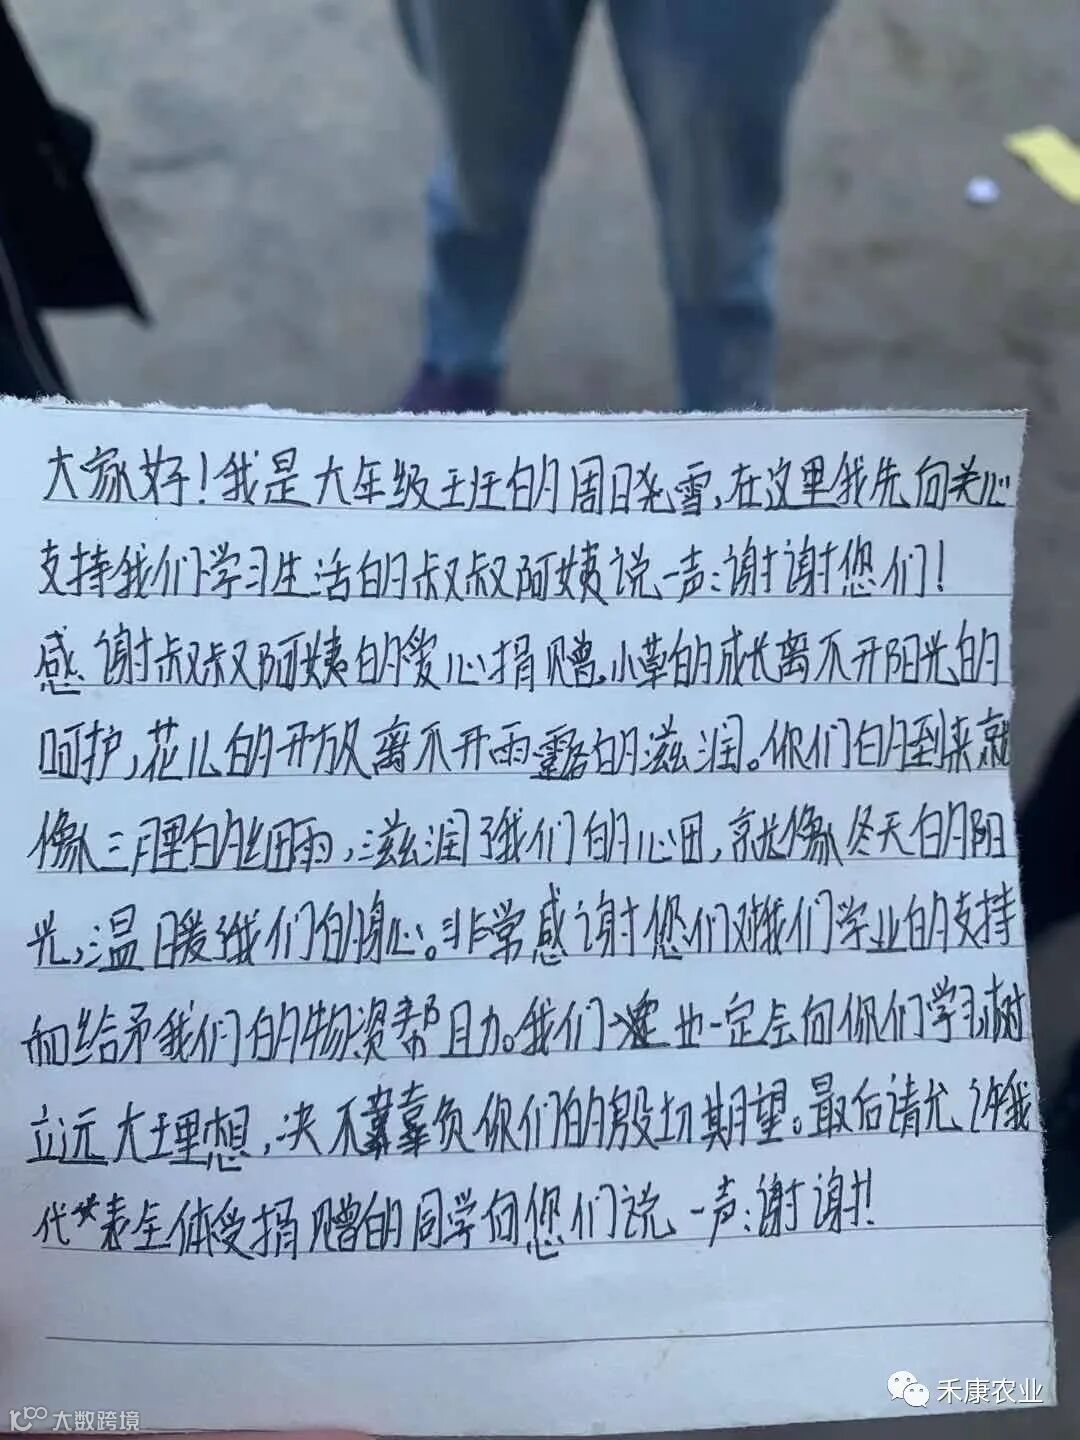 大家好!我是六年级王班的周日尧雪,在这里我先向关心
支持我们学习生活的叔叔阿姨说一声:谢谢您们!
感谢叔叔阿姨的爱心捐赠,小草的成长离不开阳光的
呵护,花儿的开放离不开雨露的滋润。你们的到来就
像三月里的细雨,滋润了我们的心田,就像冬天的阳
光,温暖了我们的身心。非常感谢您们对我们学业的支持
和给予我们的物资帮助。我们也一定会向你们学习,树
立远大理想,决不辜负你们的殷切期望。最后请允许我
代表全体受捐赠的同学向您们说一声:谢谢!
禾康农业
大数跨境